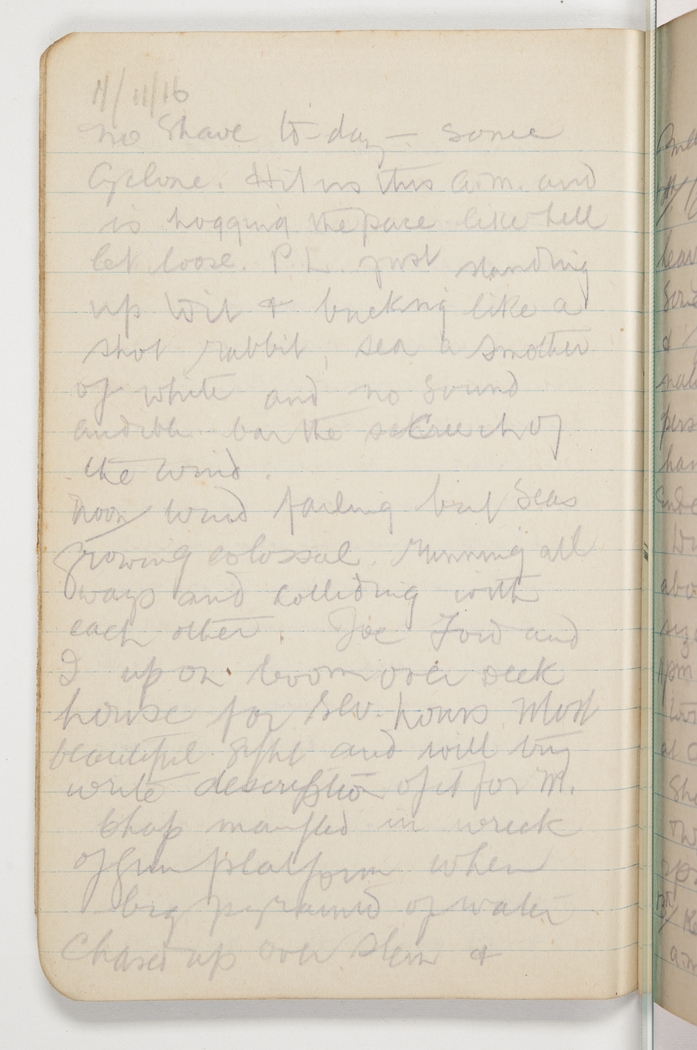 /11/16
No Shave to-day — some
Cyclone. Hit us this a.m. and
is hogging the pace like hell
let loose. P.L. just standing
up to it & bucking like a
shot rabbit, sea a smother
of white and no sound
audible bar the screech of
the wind.
Noon/ wind failing but seas
growing colossal. Running all
ways and colliding with
each other. Joe Ford and
I up on boom over deck
house for sev. hours. Most
beautiful sight and will try
write description of it for M.
Chap mangled in wreck
of gun platform when
big pyramid of water
Chased up over stern &